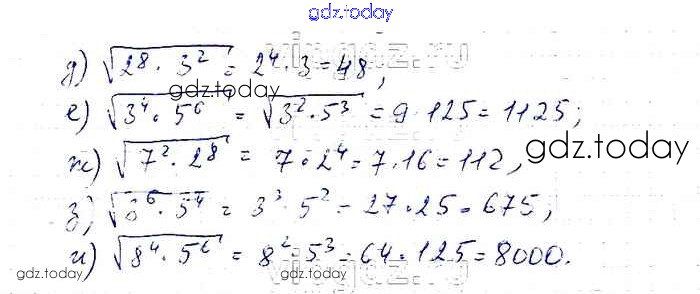 gdz.today
д) √(2⁸ · 3²) = 2⁴ · 3 = 48,
gdz.today
е) √(3⁴ · 5⁶) = √(3² · 5³) = 9 · 125 = 1125;
ж) √(7² · 2⁸) = 7 · 2⁴ = 7 · 16 = 112,
gdz.today
з) √(3⁶ · 5⁴) = 3³ · 5² = 27 · 25 = 675;
и) √(8⁴ · 5⁶) = 8² · 5³ = 64 · 125 = 8000.
gdz.today
gdz.today